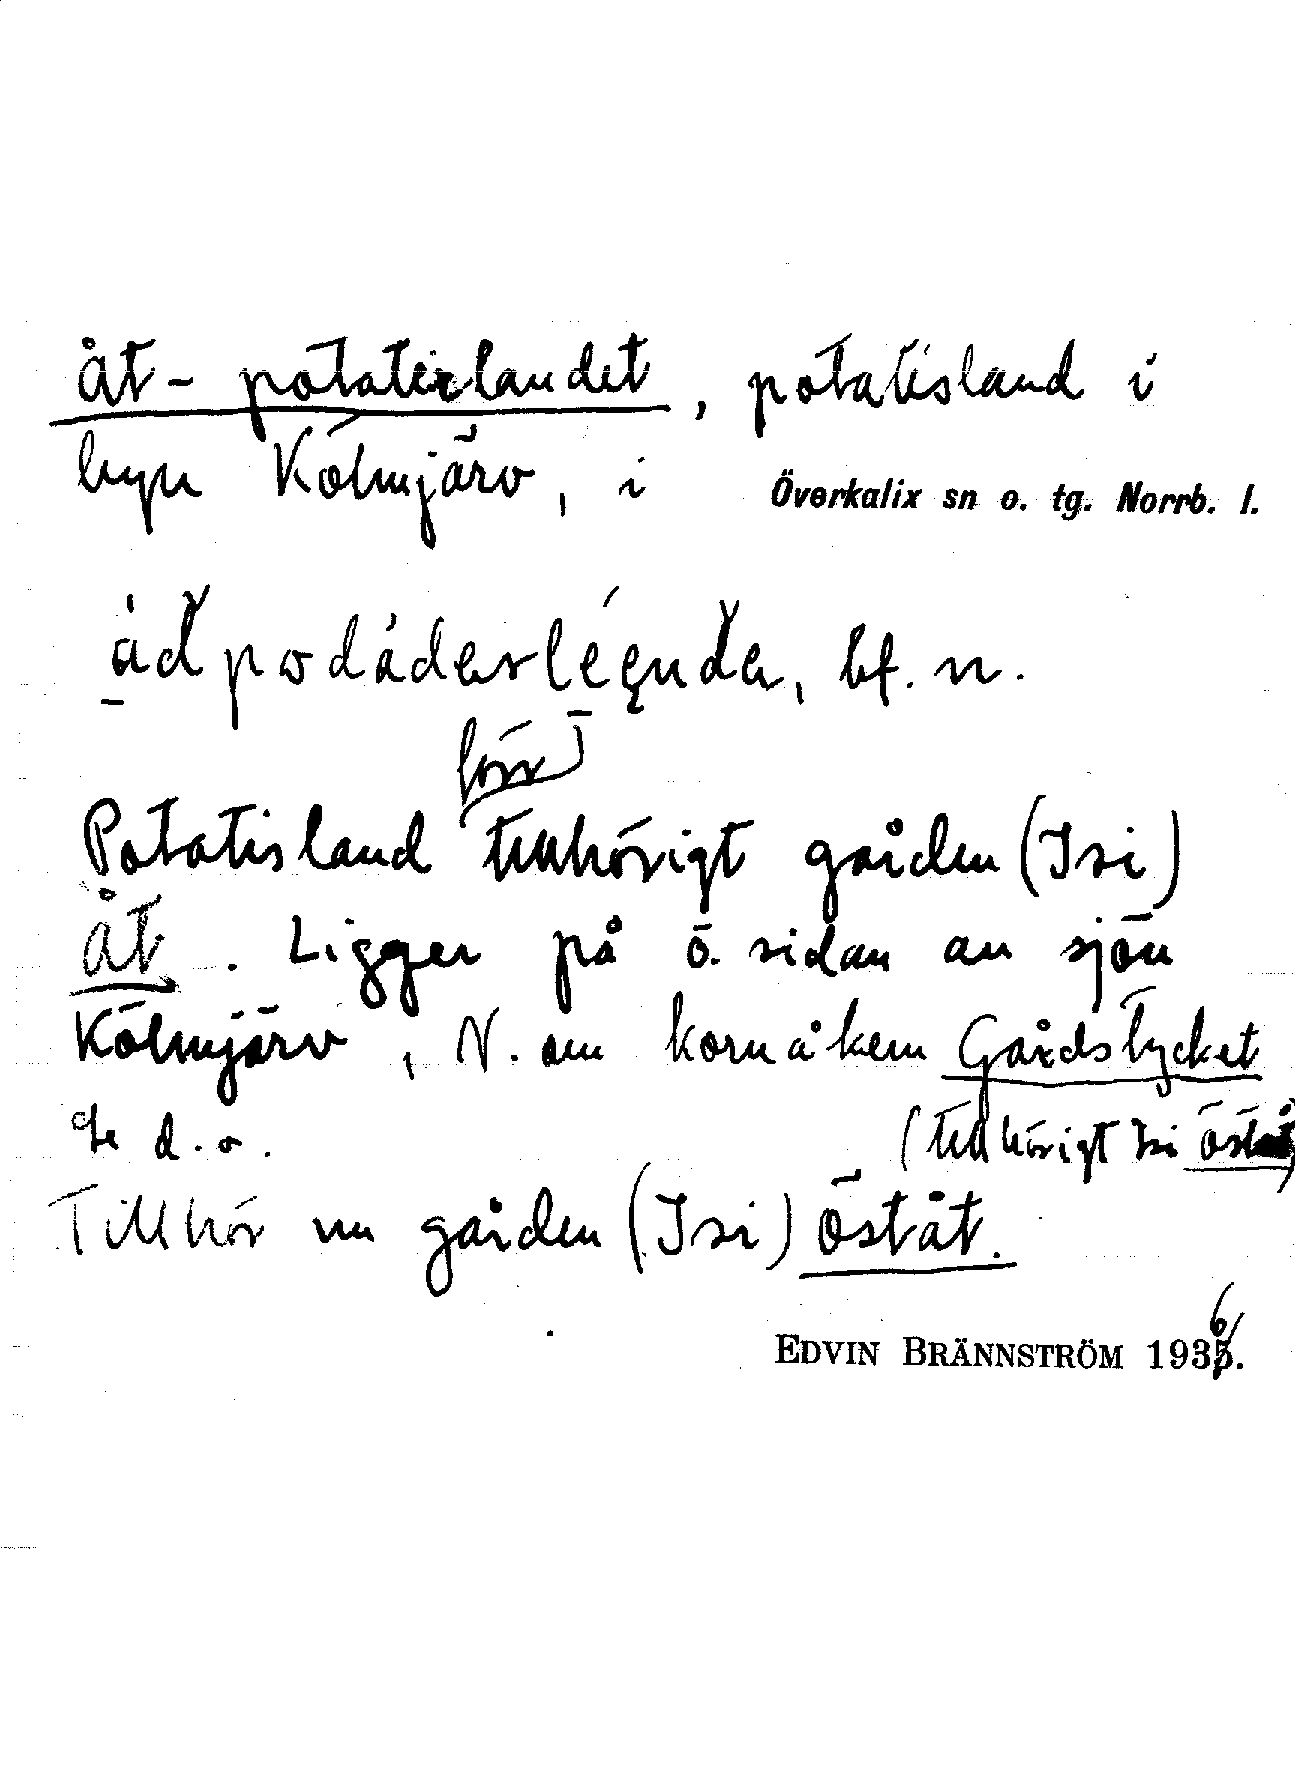 åt-potatislandet, potatisland i
byn Kölmjärv, i Överkalix sn o. tg. Norrb. l.
bf. n.
förr
Potatisland tillhörigt gården (Isi)
åt. Ligger på ö. sidan av sjön
Kölmjärv, N. om kornåkern Gårdstycket
(tillhörigt Isi öståt)
se d. o.
Tillhör nu gården (Isi) öståt.
EDVIN BRÄNNSTRÖM 1936.